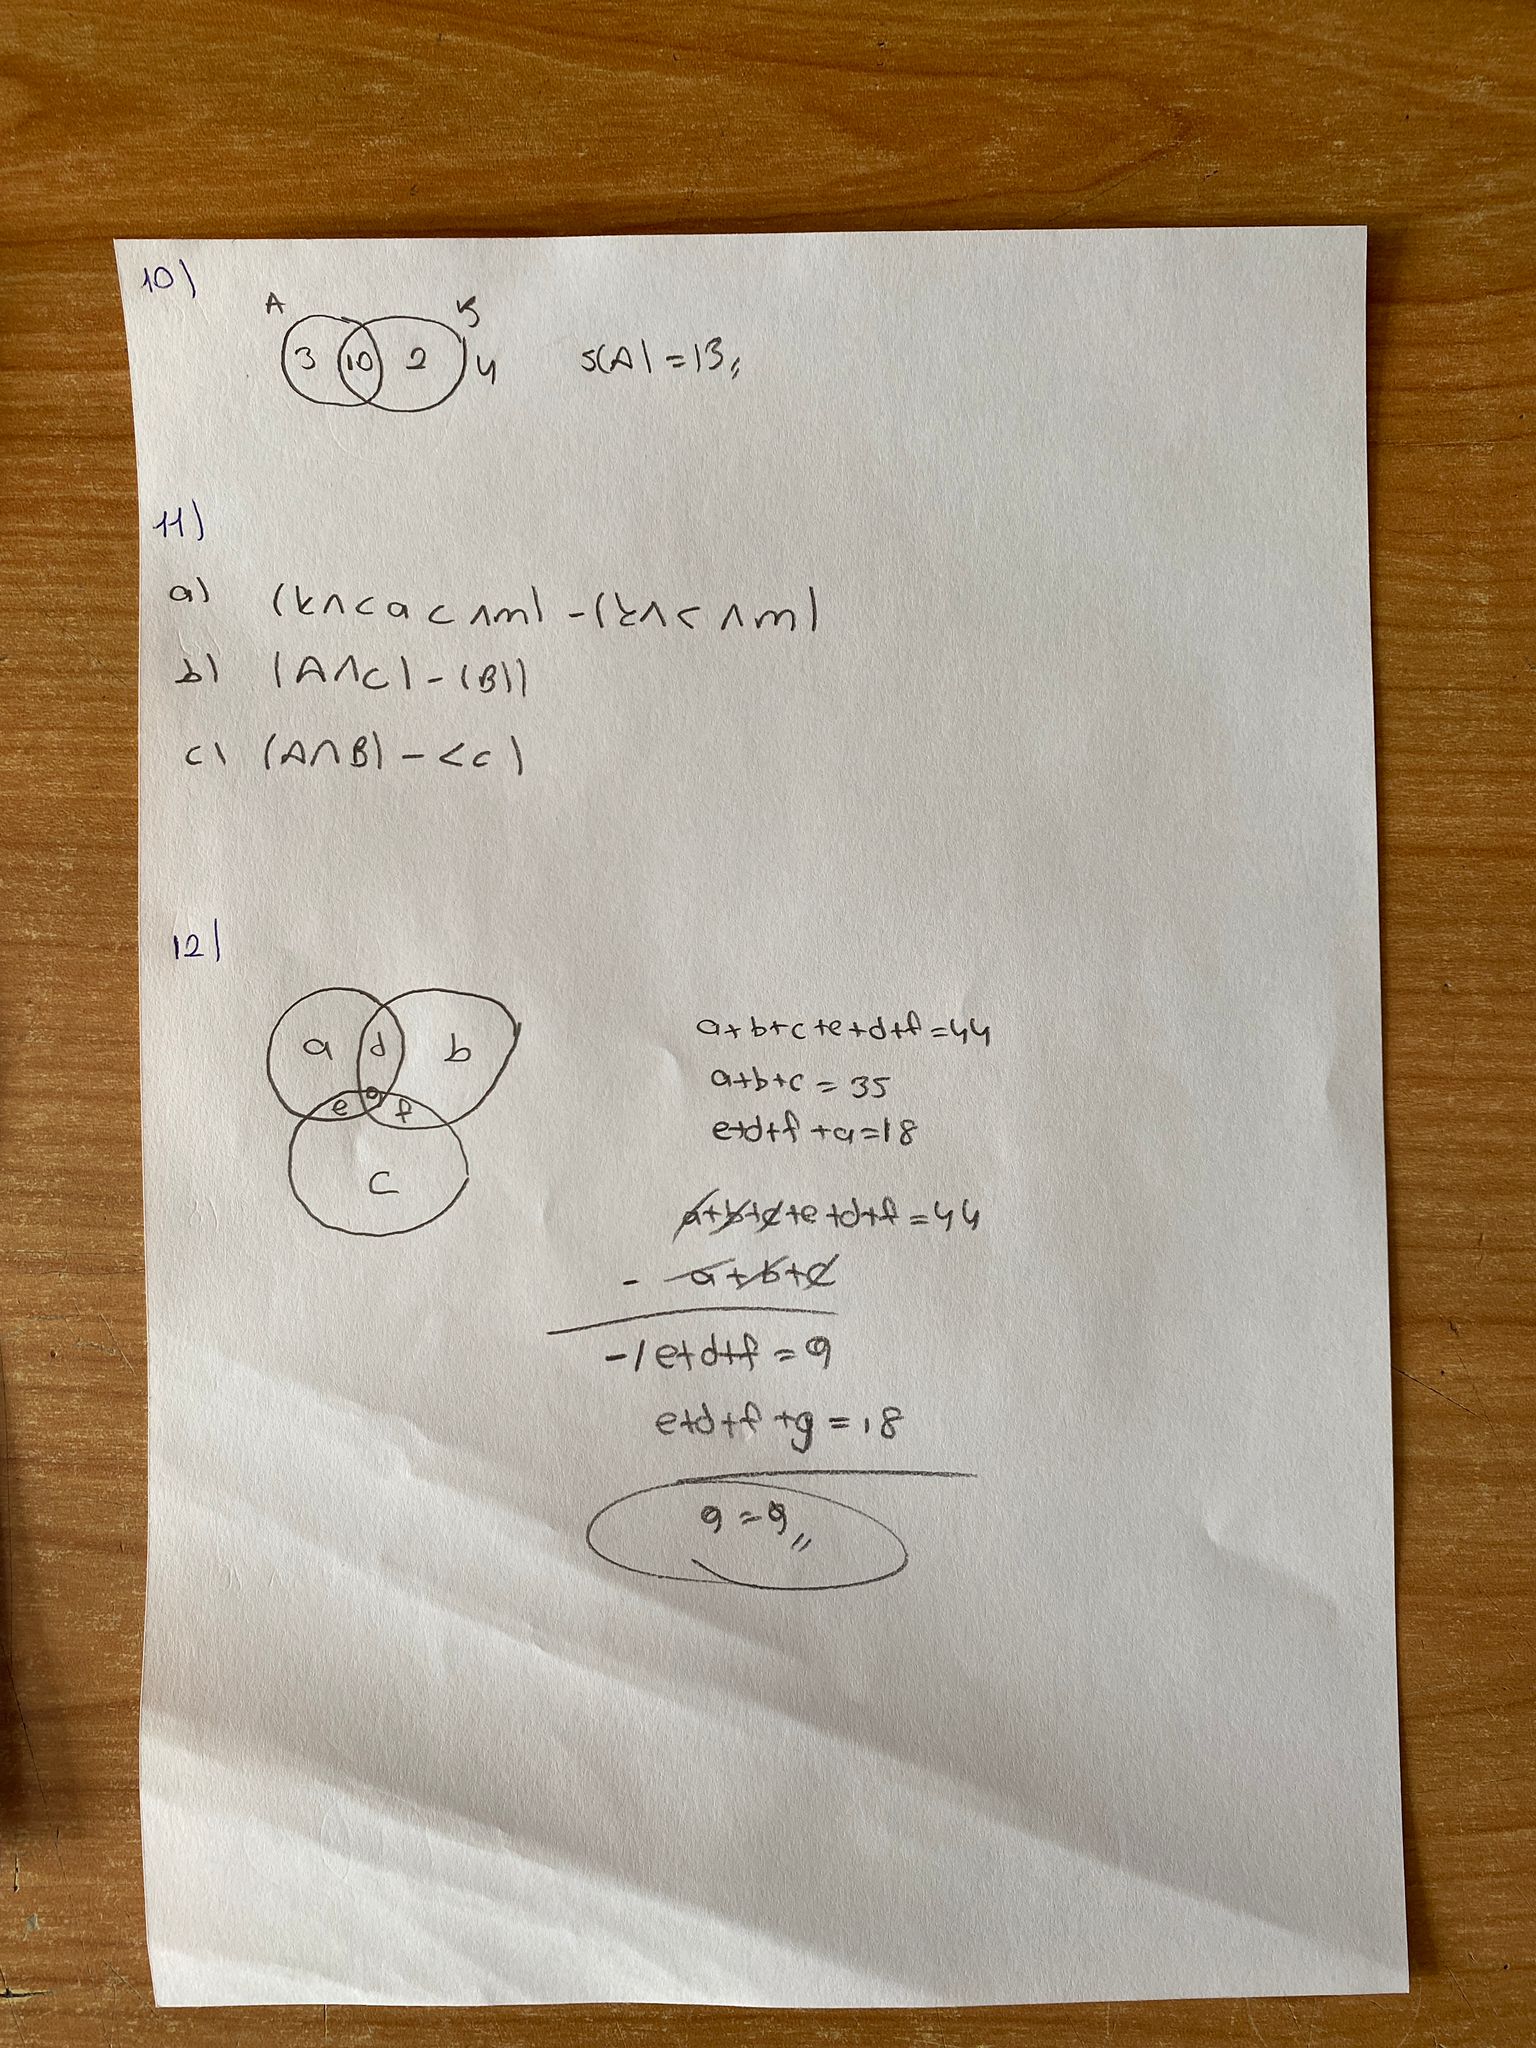 10)
A B
3 10 2 4 s(A) = 13,,
11)
a) (k∩c a c ∩m) - (k∩c ∩m)
b) (A∩C) - (B))
c) (A∩B) - <c)
12)
a d b
e g f
c
a+b+c+e+d+f=44
a+b+c = 35
e+d+f+g=18
a+b+c+e+d+f=44
- a+b+c
-/ e+d+f = 9
e+d+f+g = 18
g = 9,,